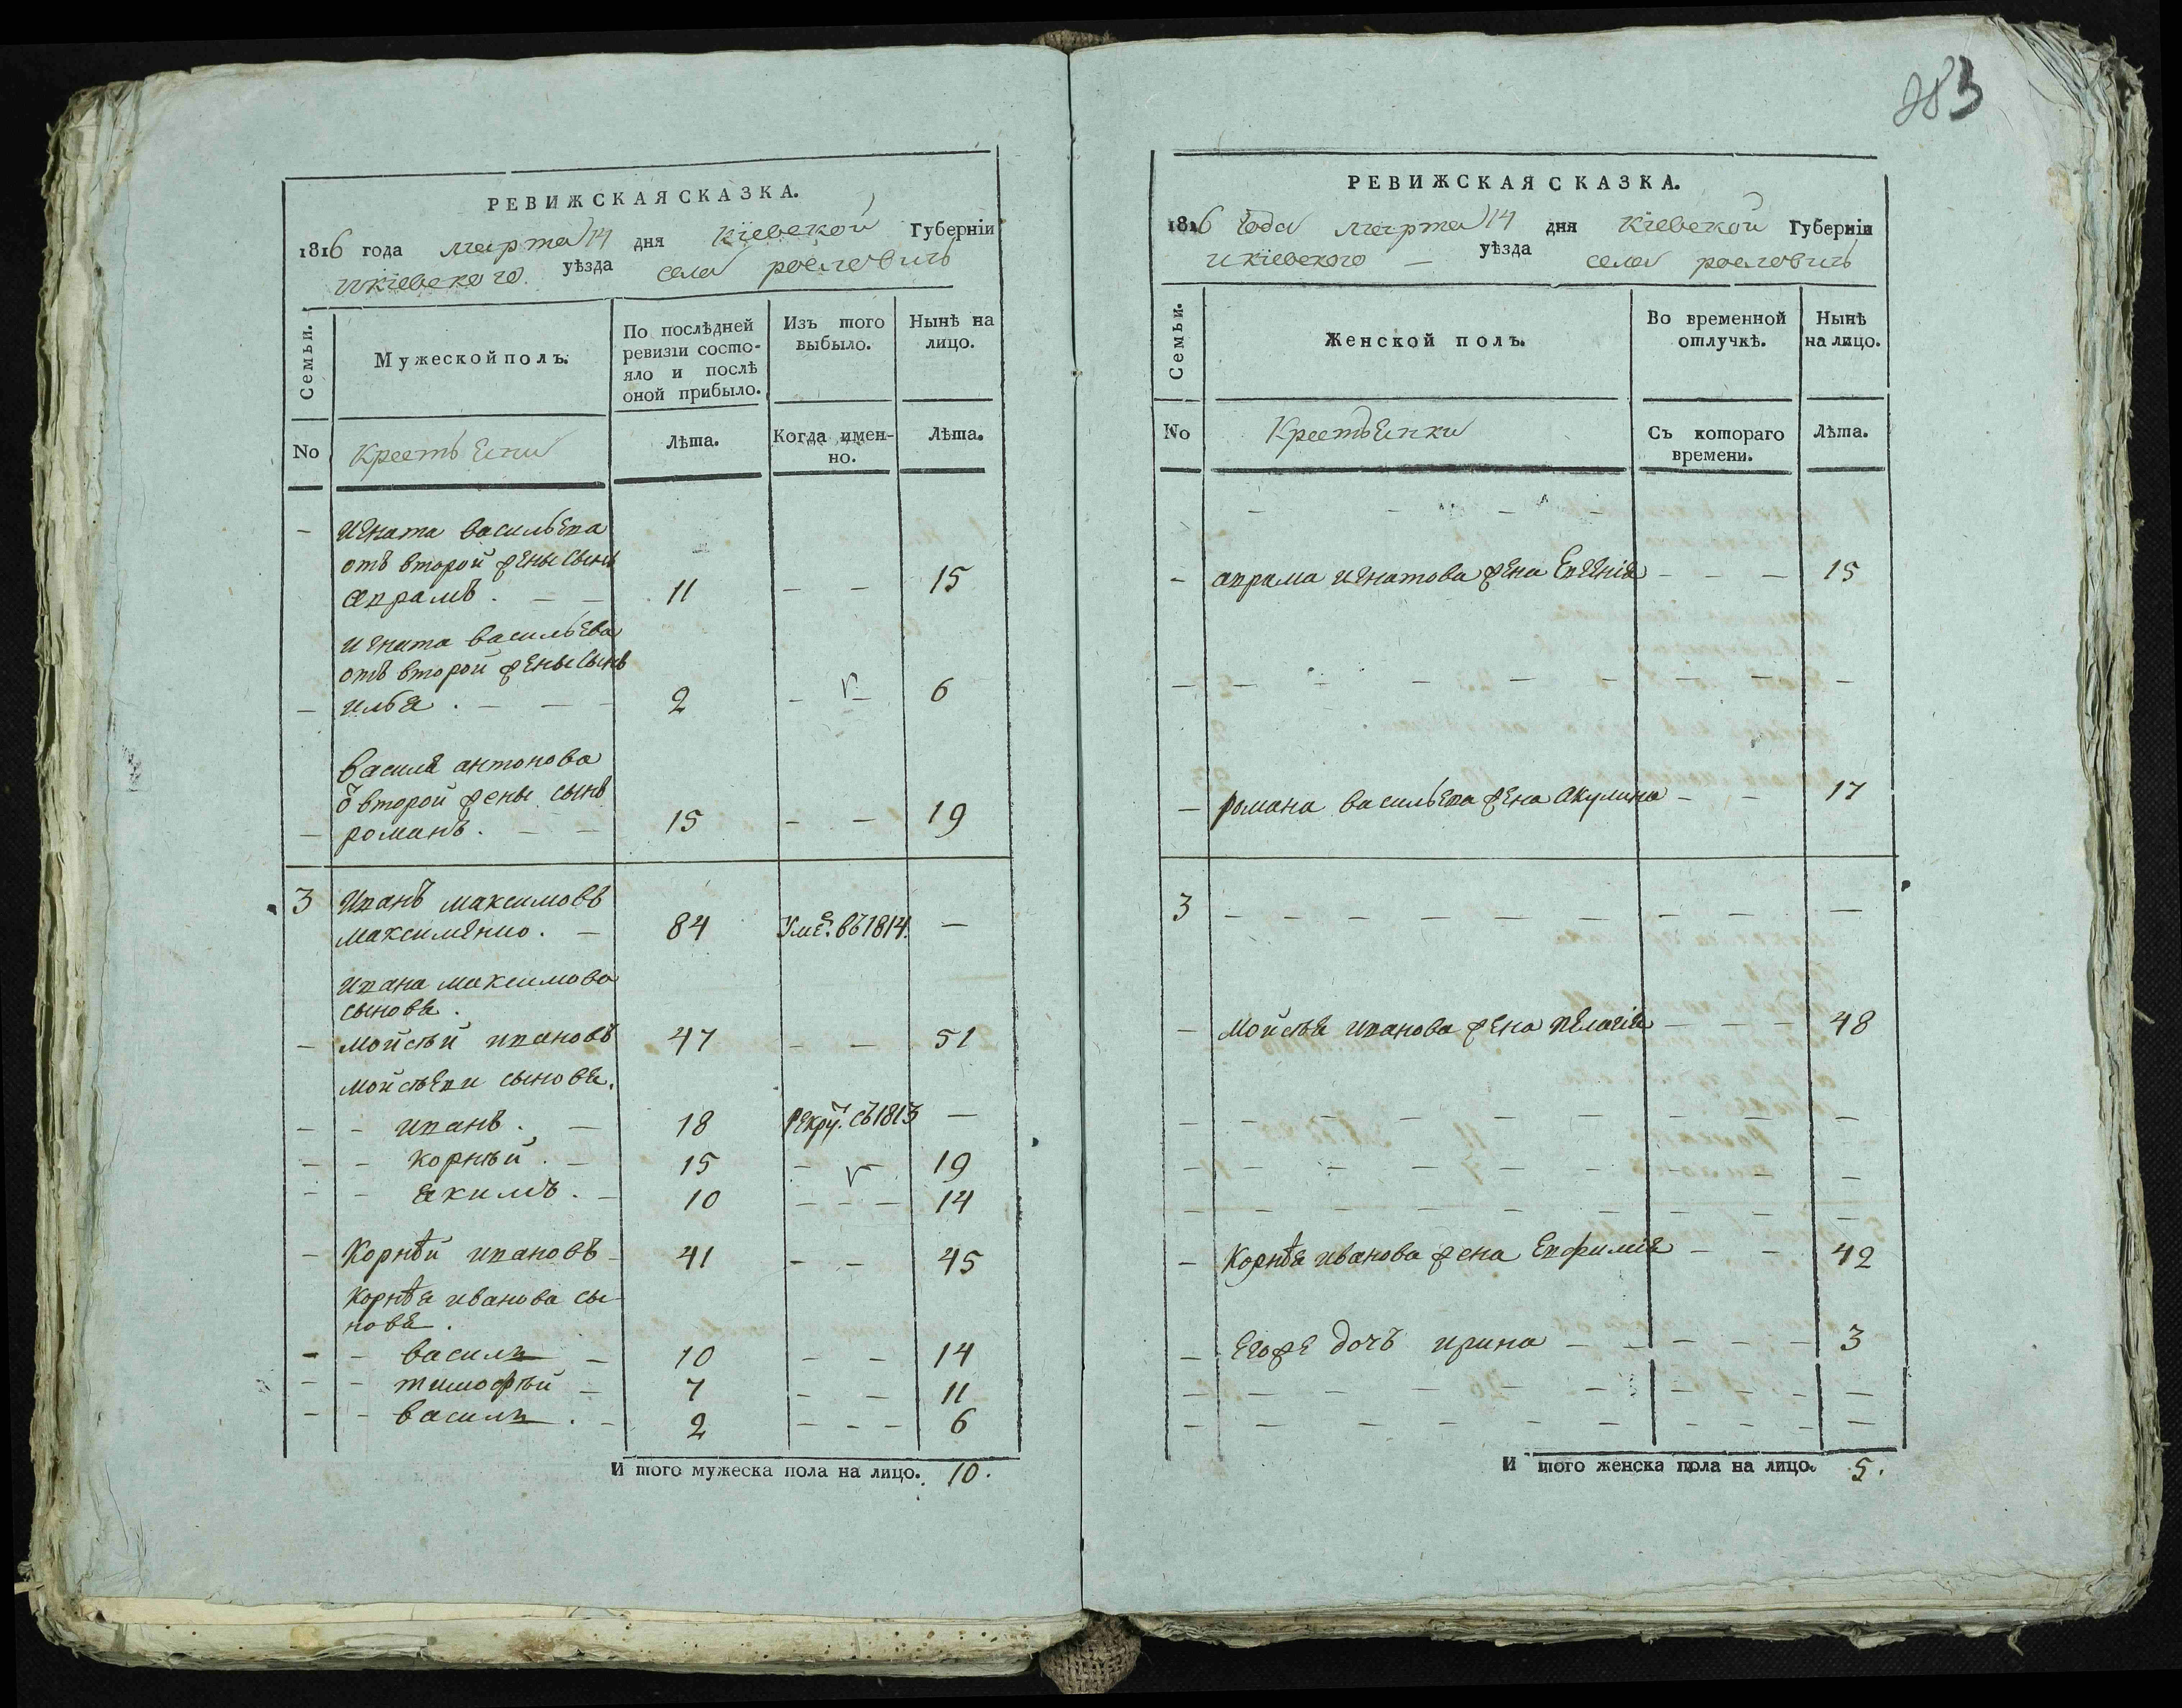 883
РЕВИЖСКАЯ СКАЗКА.
1816 года марта 14 дня Кіевской Губерніи
и кіевского уѣзда села рославичь
Семьи.
Мужеской полъ.
По послѣдней ревизіи состо-
яло и послѣ
оной прибыло.
Изъ того
выбыло.
Нынѣ на
лицо.
No
Крестьяни
Лѣта.
Когда имен-
но.
Лѣта.
Игната васильева
отъ второй жены сынъ
аврамъ. 11 15
Игната васильева
отъ второй жены сынъ
илья. 2 6
василя антонова
о второй жены сынъ
романъ. 15 19
3 Иванъ максимовъ
максименко. 84 Уме. въ 1814.
ивана максимова
сыновя.
мойсѣй ивановъ 47 51
мойсѣеви сыновя.
иванъ. 18 рекру. съ 1813
корнѣй. 15 19
якимъ. 10 14
Корнѣй ивановъ 41 45
Корнѣя иванова сы
новя.
василь 10 14
тимофѣй 7 11
василь. 2 6
И того мужеска пола на лицо. 10.
РЕВИЖСКАЯ СКАЗКА.
1816 года марта 14 дня Кіевской Губерніи
и кіевского уѣзда села рославичь
Семьи.
Женской полъ.
Во временной
отлучкѣ.
Нынѣ
на лицо.
No
Крестьянки
Съ котораго
времени.
Лѣта.
аврама игнатова жена Евгенія 15
романа васильева жена акулина 17
3
Мойсѣя иванова жена пелагія 48
Корнѣя иванова жена Евфимія 42
Егоже дочъ ирина 3
И того женска пола на лицо. 5.